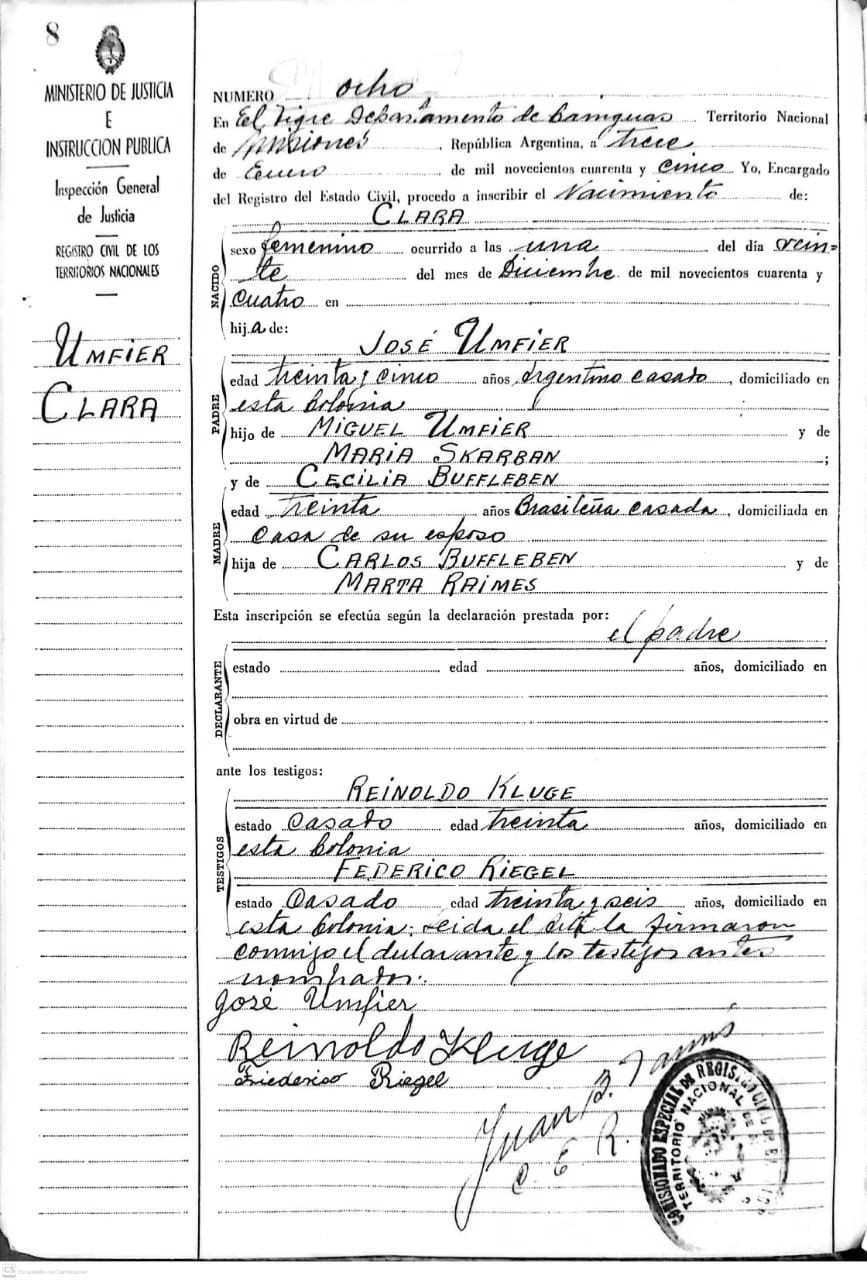 8
MINISTERIO DE JUSTICIA
E
INSTRUCCION PUBLICA
Inspección General
de Justicia
REGISTRO CIVIL DE LOS
TERRITORIOS NACIONALES
UMFIER
CLARA
NUMERO ocho
En El Tigre Departamento de Cainguas Territorio Nacional
de Misiones, República Argentina, a trece
de Enero de mil novecientos cuarenta y cinco Yo, Encargado
del Registro del Estado Civil, procedo a inscribir el Nacimiento de:
CLARA
NACIDO
sexo femenino ocurrido a las una del día vein=
te del mes de Diciembre de mil novecientos cuarenta y
cuatro en
hija de:
JOSÉ UMFIER
PADRE
edad treinta y cinco años Argentino casado, domiciliado en
esta Colonia
hijo de MIGUEL UMFIER y de
MARIA SKARBAN;
y de CECILIA BUFFLEBEN
MADRE
edad treinta años Brasileña casada, domiciliada en
casa de su esposo
hija de CARLOS BUFFLEBEN y de
MARTA RAIMES
Esta inscripción se efectúa según la declaración prestada por:
el padre
DECLARANTE
estado edad años, domiciliado en
obra en virtud de
ante los testigos:
TESTIGOS
REINOLDO KLUGE
estado casado edad treinta años, domiciliado en
esta Colonia
FEDERICO RIEGEL
estado Casado edad treinta y seis años, domiciliado en
esta Colonia; Leida el acta la firmaron
conmigo el declarante y los testigos antes
nombrados.
José Umfier
Reinoldo Kluge
Friederico Riegel
Juan B.
C. E. R.
COMISIONADO ESPECIAL DE REGISTRO CIVIL
TERRITORIO NACIONAL DE
CS Escaneado con CamScanner